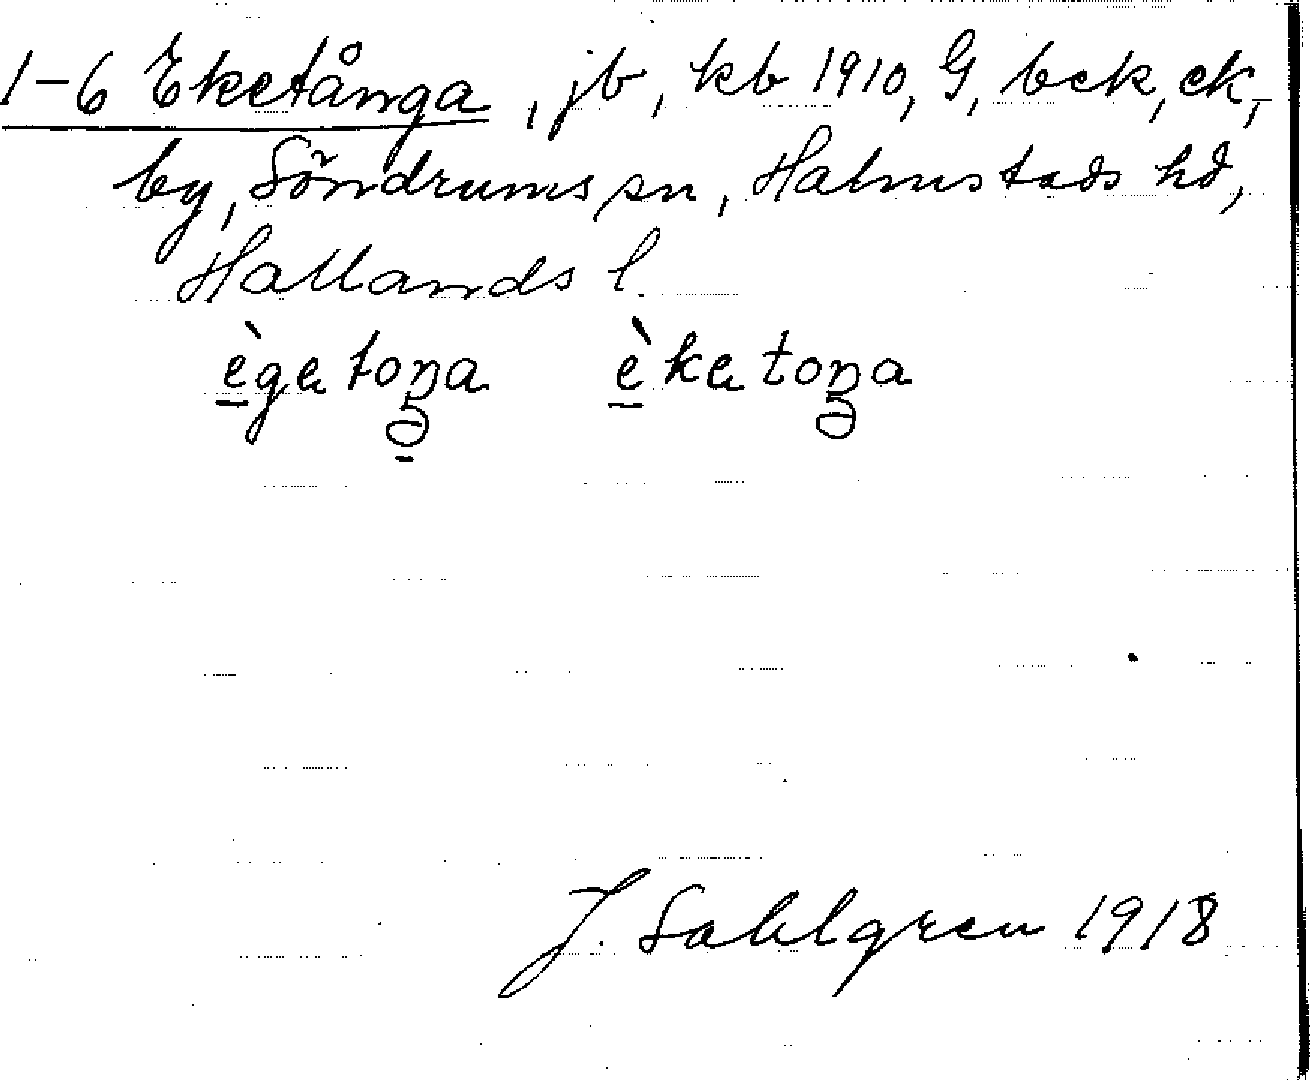 1-6 Eketånga, jb, kb 1910, G, bek, ek,
by, Söndrums sn, Halmstads hd,
Hallands l.
ègetoŋa èketoŋa
J. Sahlgren 1918